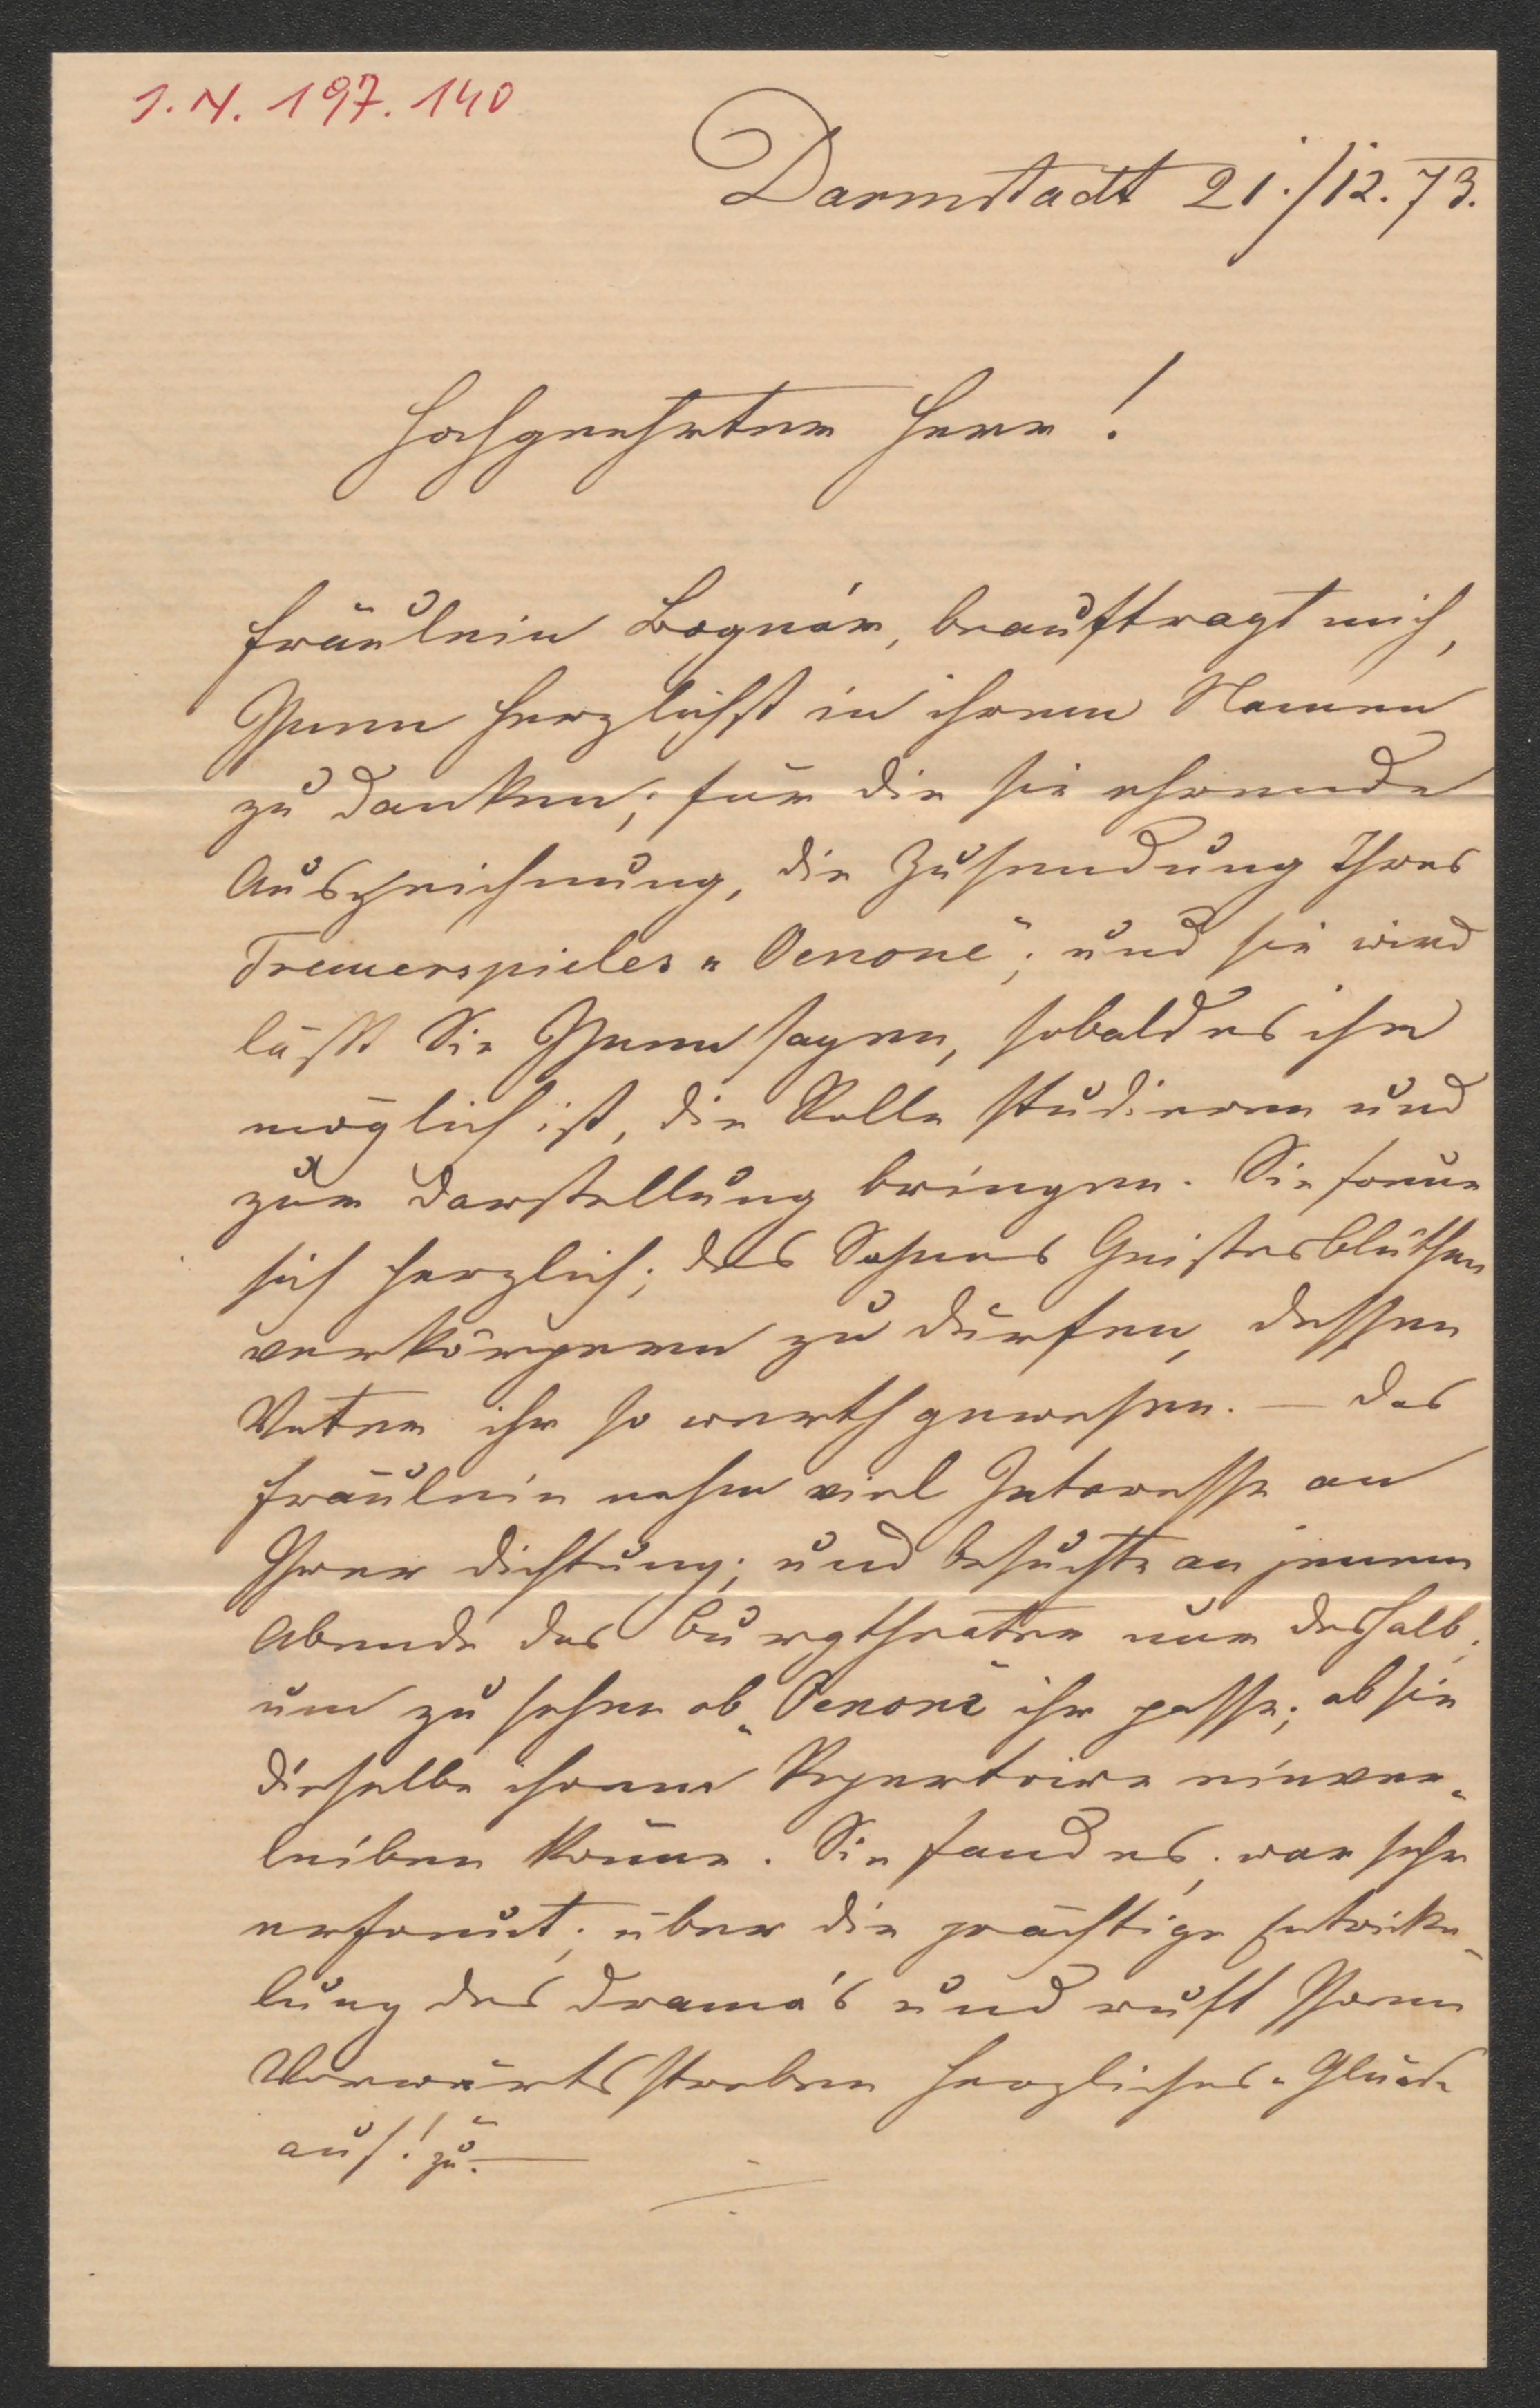 J.N. 197.140
Darmstadt 21./12. 73.
Hochgeehrter Herr!
Fräulein Bognár, beauftragt mich,
Ihnen herzlichst in ihrem Namen
zu danken; für die sie ehrende
Auszeichnung, die Zusendung Ihres
Trauerspieles „Oenone"; und sie wird
läßt Sie Ihnen sagen, sobald es ihr
möglich ist, die Rolle studieren und
zur Darstellung bringen. Sie freue
sich herzlich; des Sohnes Geistesblüthen
verkörpern zu dürfen, dessen
Vater ihr so werth gewesen. — Das
Fräulein nahm viel Interesse an
Ihrer Dichtung; und besuchte an jenem
Abende das Burgtheater nur deshalb,
um zu sehen ob „Oenone" ihr passe; ob sie
dieselbe ihrem Repertoire einver-
leiben könne. Sie fand es, war sehr
erfreut; über die prächtige Entwicke-
lung des Drama's und ruft Ihrem
Vorwärtsstreben herzliches „Glück
auf!" zu. —